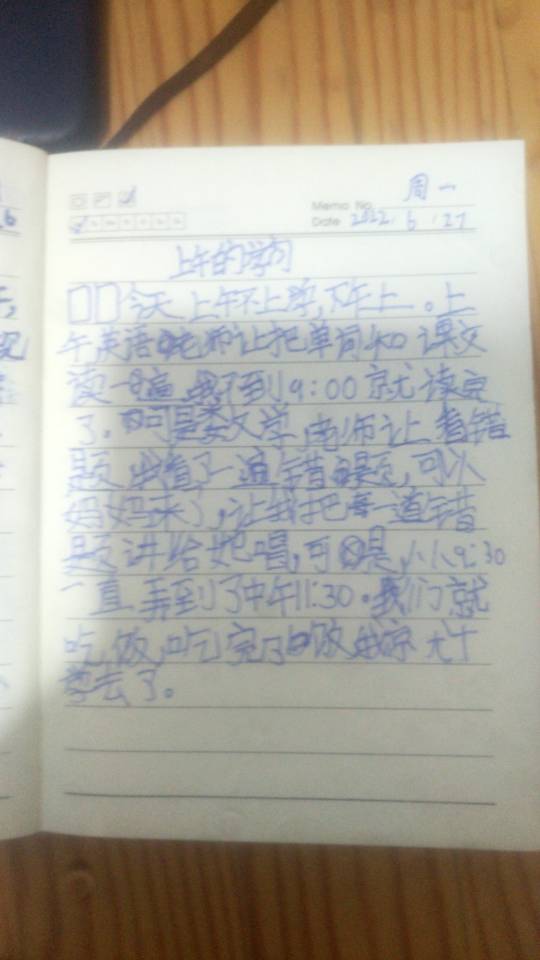 周一
Memo No.
Date 2022.6.27
上午的学习
今天上午不上学,下午上。上
午英语老师让把单词和课文
读一遍,我不到9:00就读完
了。可是数学老师让看错
题,我看了一遍错题,可以
妈妈来了,让我把每一道错
题讲给她唱,可是,从9:30
一直弄到了中午11:30.我们就
吃饭,吃完了饭我就上
学去了。